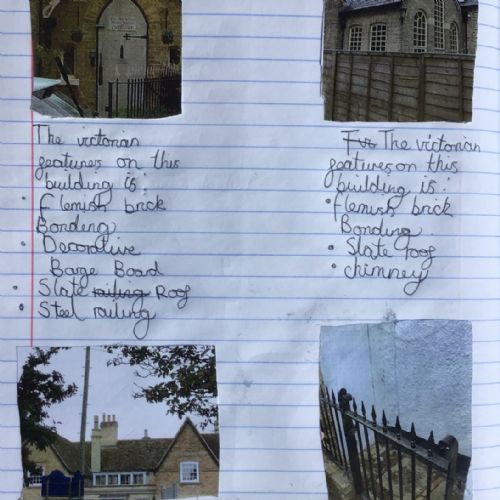 The victorian
features on this
building is:
• Flemish brick
Bonding
• Decorative
Barge Board
• Slate railing Roof
• Steel railing
For The victorian
features on this
building is:
• flemish brick
Bonding
• Slate roof
• chimney